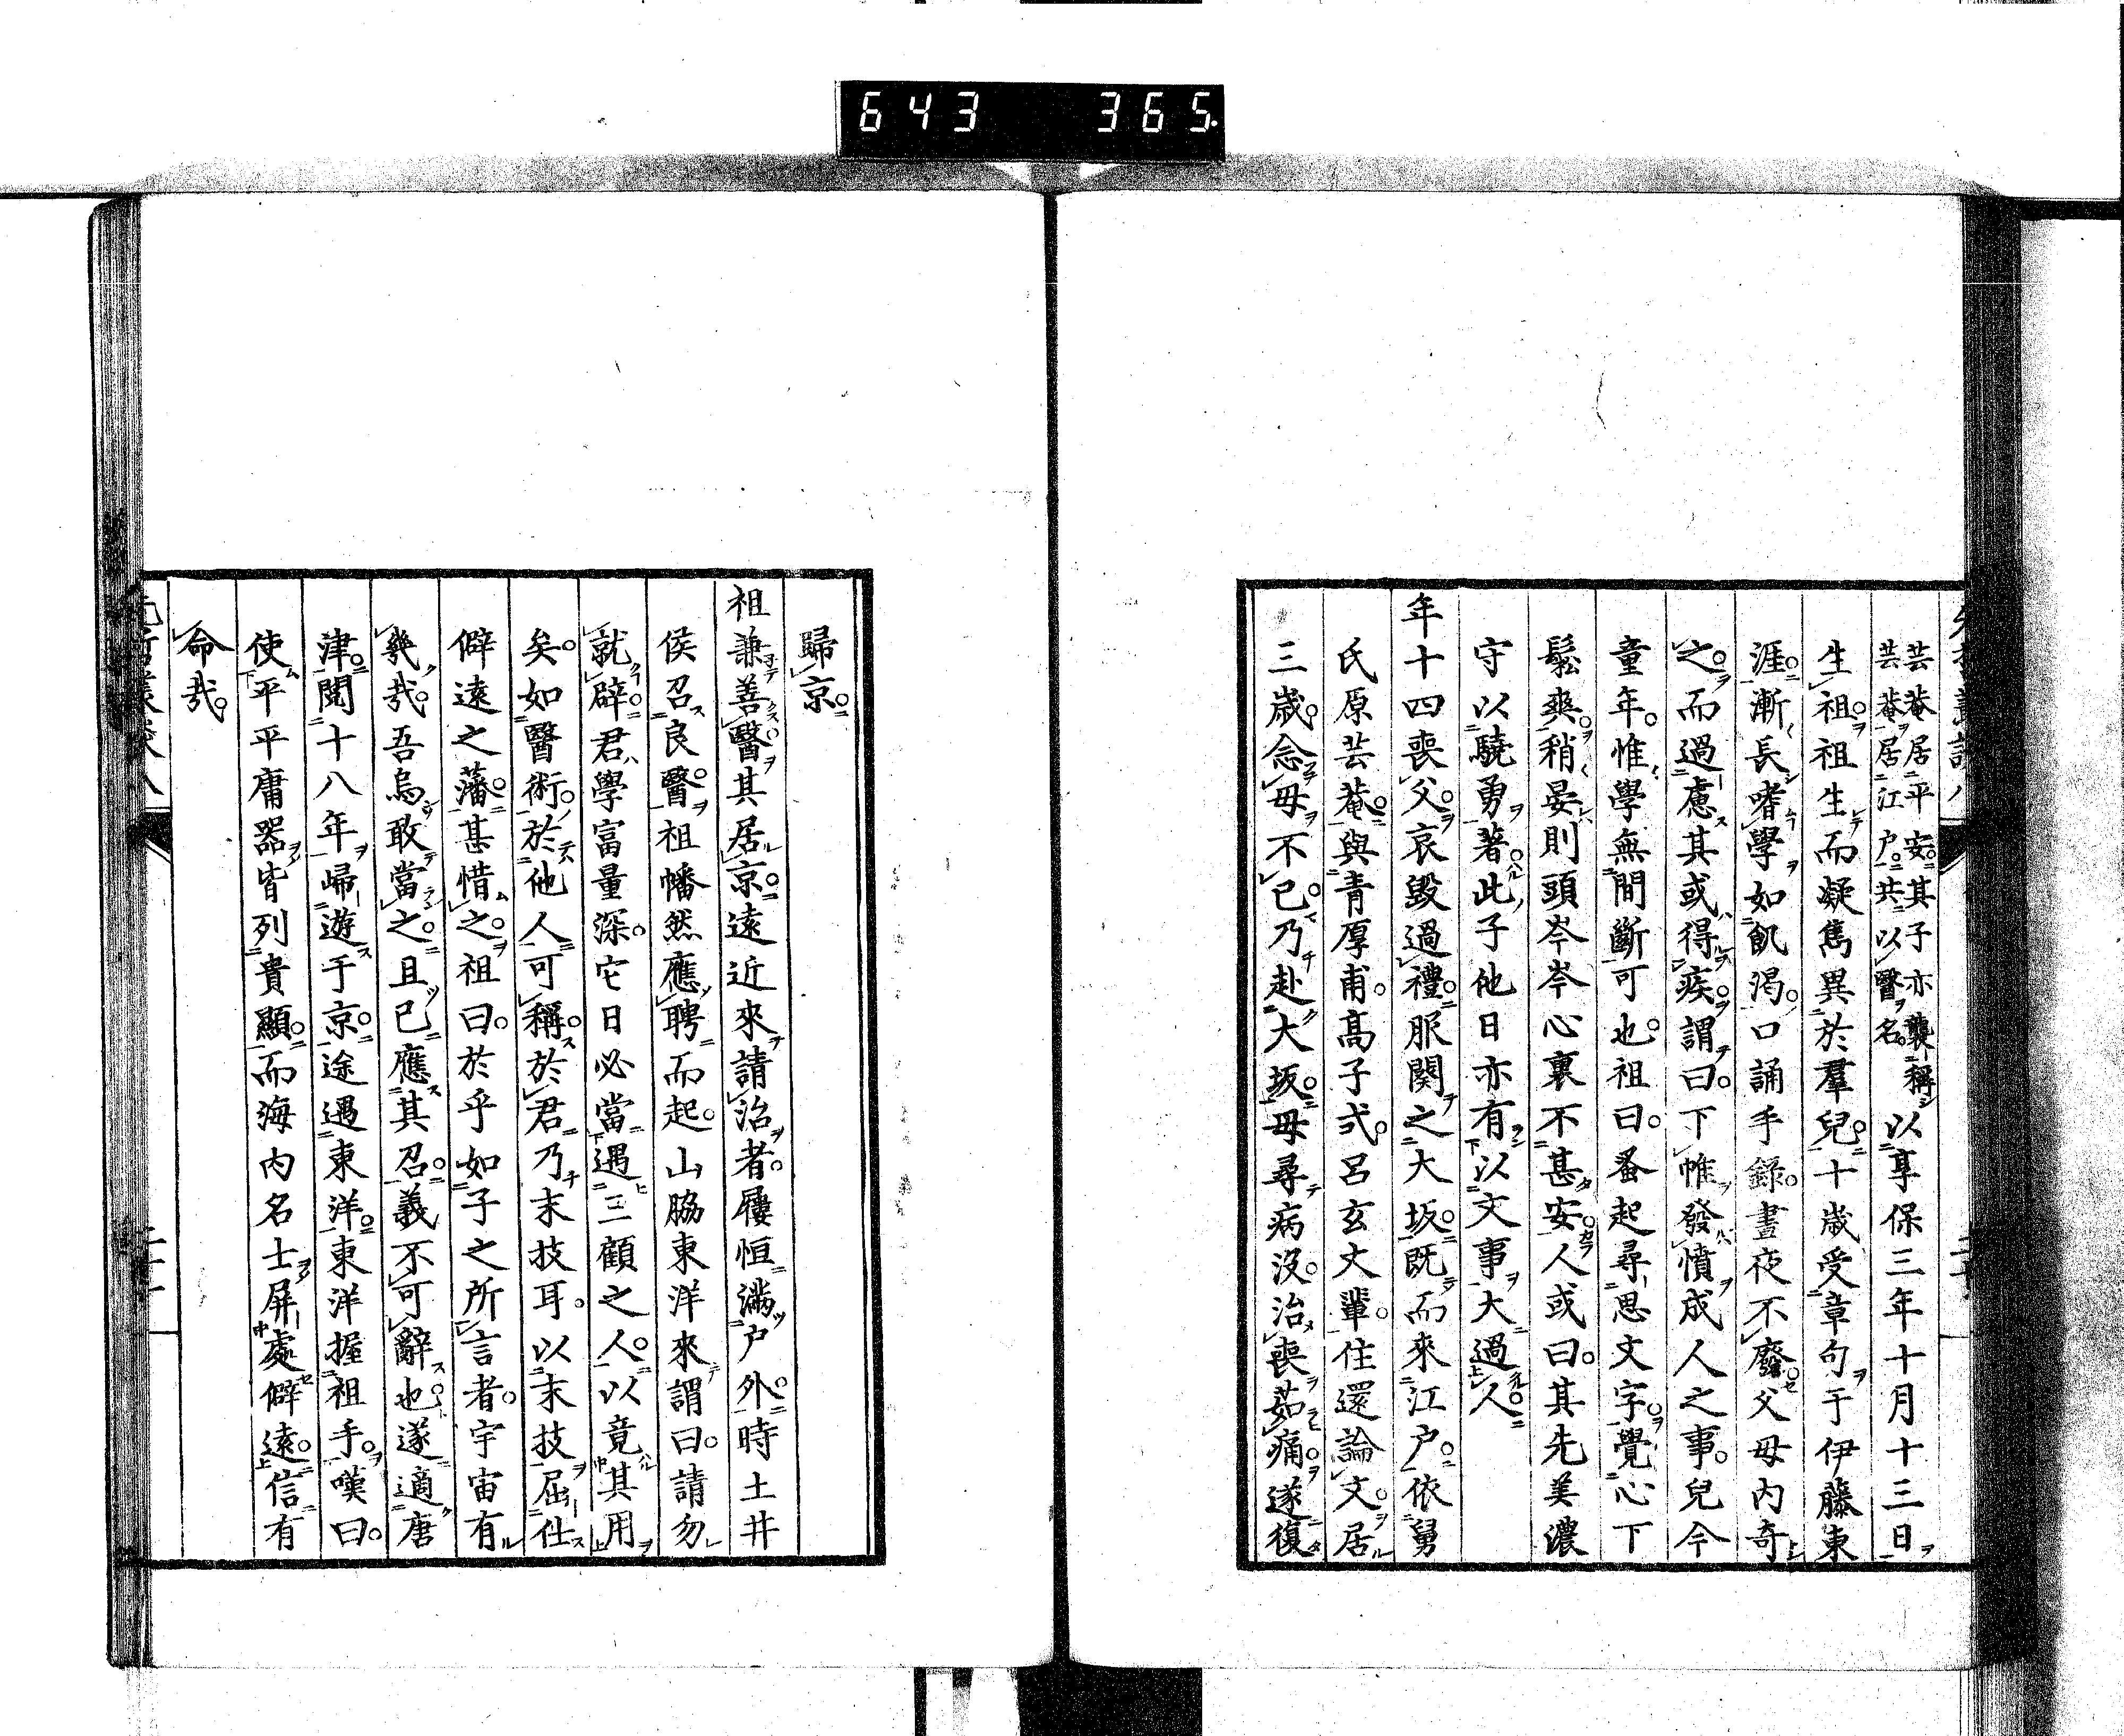 643 365
芸菴居平安其子亦襲稱
芸菴居江戸共以醫名
以享保三年十月十三日
生祖祖生而凝雋異於羣兒十歳受章句于伊藤東
涯漸長嗜學如飢渇口誦手錄晝夜不廢父母内奇
之而過慮其或得疾謂曰下帷發憤成人之事兒今
童年惟學無間斷可也祖曰蚤起尋思文字覺心下
鬆爽稍晏則頭岑岑心裏不甚安人或曰其先美濃
守以驍勇著此子他日亦有以文事大過人
年十四喪父哀毀過禮服闋之大坂既而來江戸依舅
氏原芸菴與青厚甫髙子式呂玄丈輩住還論文居
三歳念母不已乃赴大坂母尋病沒治喪茹痛遂復
歸京
祖兼善醫其居京遠近來請治者屨恒滿户外時土井
侯召良醫祖幡然應聘而起山脇東洋來謂曰請勿
就辟君學富量深它日必當遇三顧之人以竟其用
矣如醫術於他人可稱於君乃末技耳以末技屈仕
僻遠之藩甚惜之祖曰於乎如子之所言者宇宙有
幾哉吾烏敢當之且已應其召義不可辭也遂適唐
津閲十八年歸遊于京途遇東洋東洋握祖手嘆曰
使平平庸器皆列貴顯而海内名士屏處僻遠信有
命哉